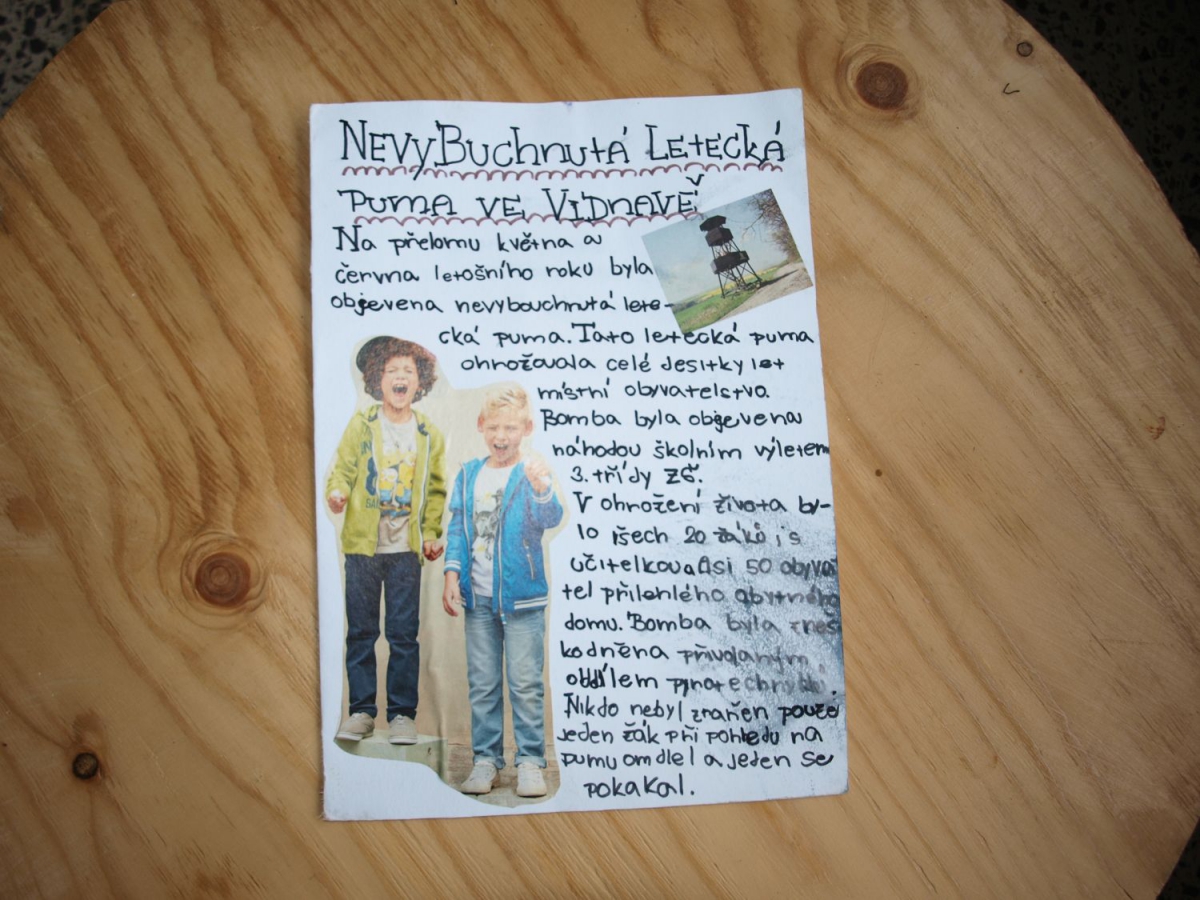 NEVYBUCHNUTÁ LETECKÁ
PUMA VE VIDNAVĚ
Na přelomu května a
června letošního roku byla
objevena nevybouchnutá lete-
cká puma. Tato letecká puma
ohrožovala celé desítky let
místní obyvatelstvo.
Bomba byla objevena
náhodou školním výletem
3. třídy ZŠ.
V ohrožení života by-
lo všech 20 žáků i s
učitelkou a Asi 50 obyva
tel přilehlého obytného
domu. Bomba byla zneš
kodněna přivolaným
oddílem pyrotechniků.
Nikdo nebyl zraněn pouze
jeden žák při pohledu na
pumu omdlel a jeden se
pokakal.